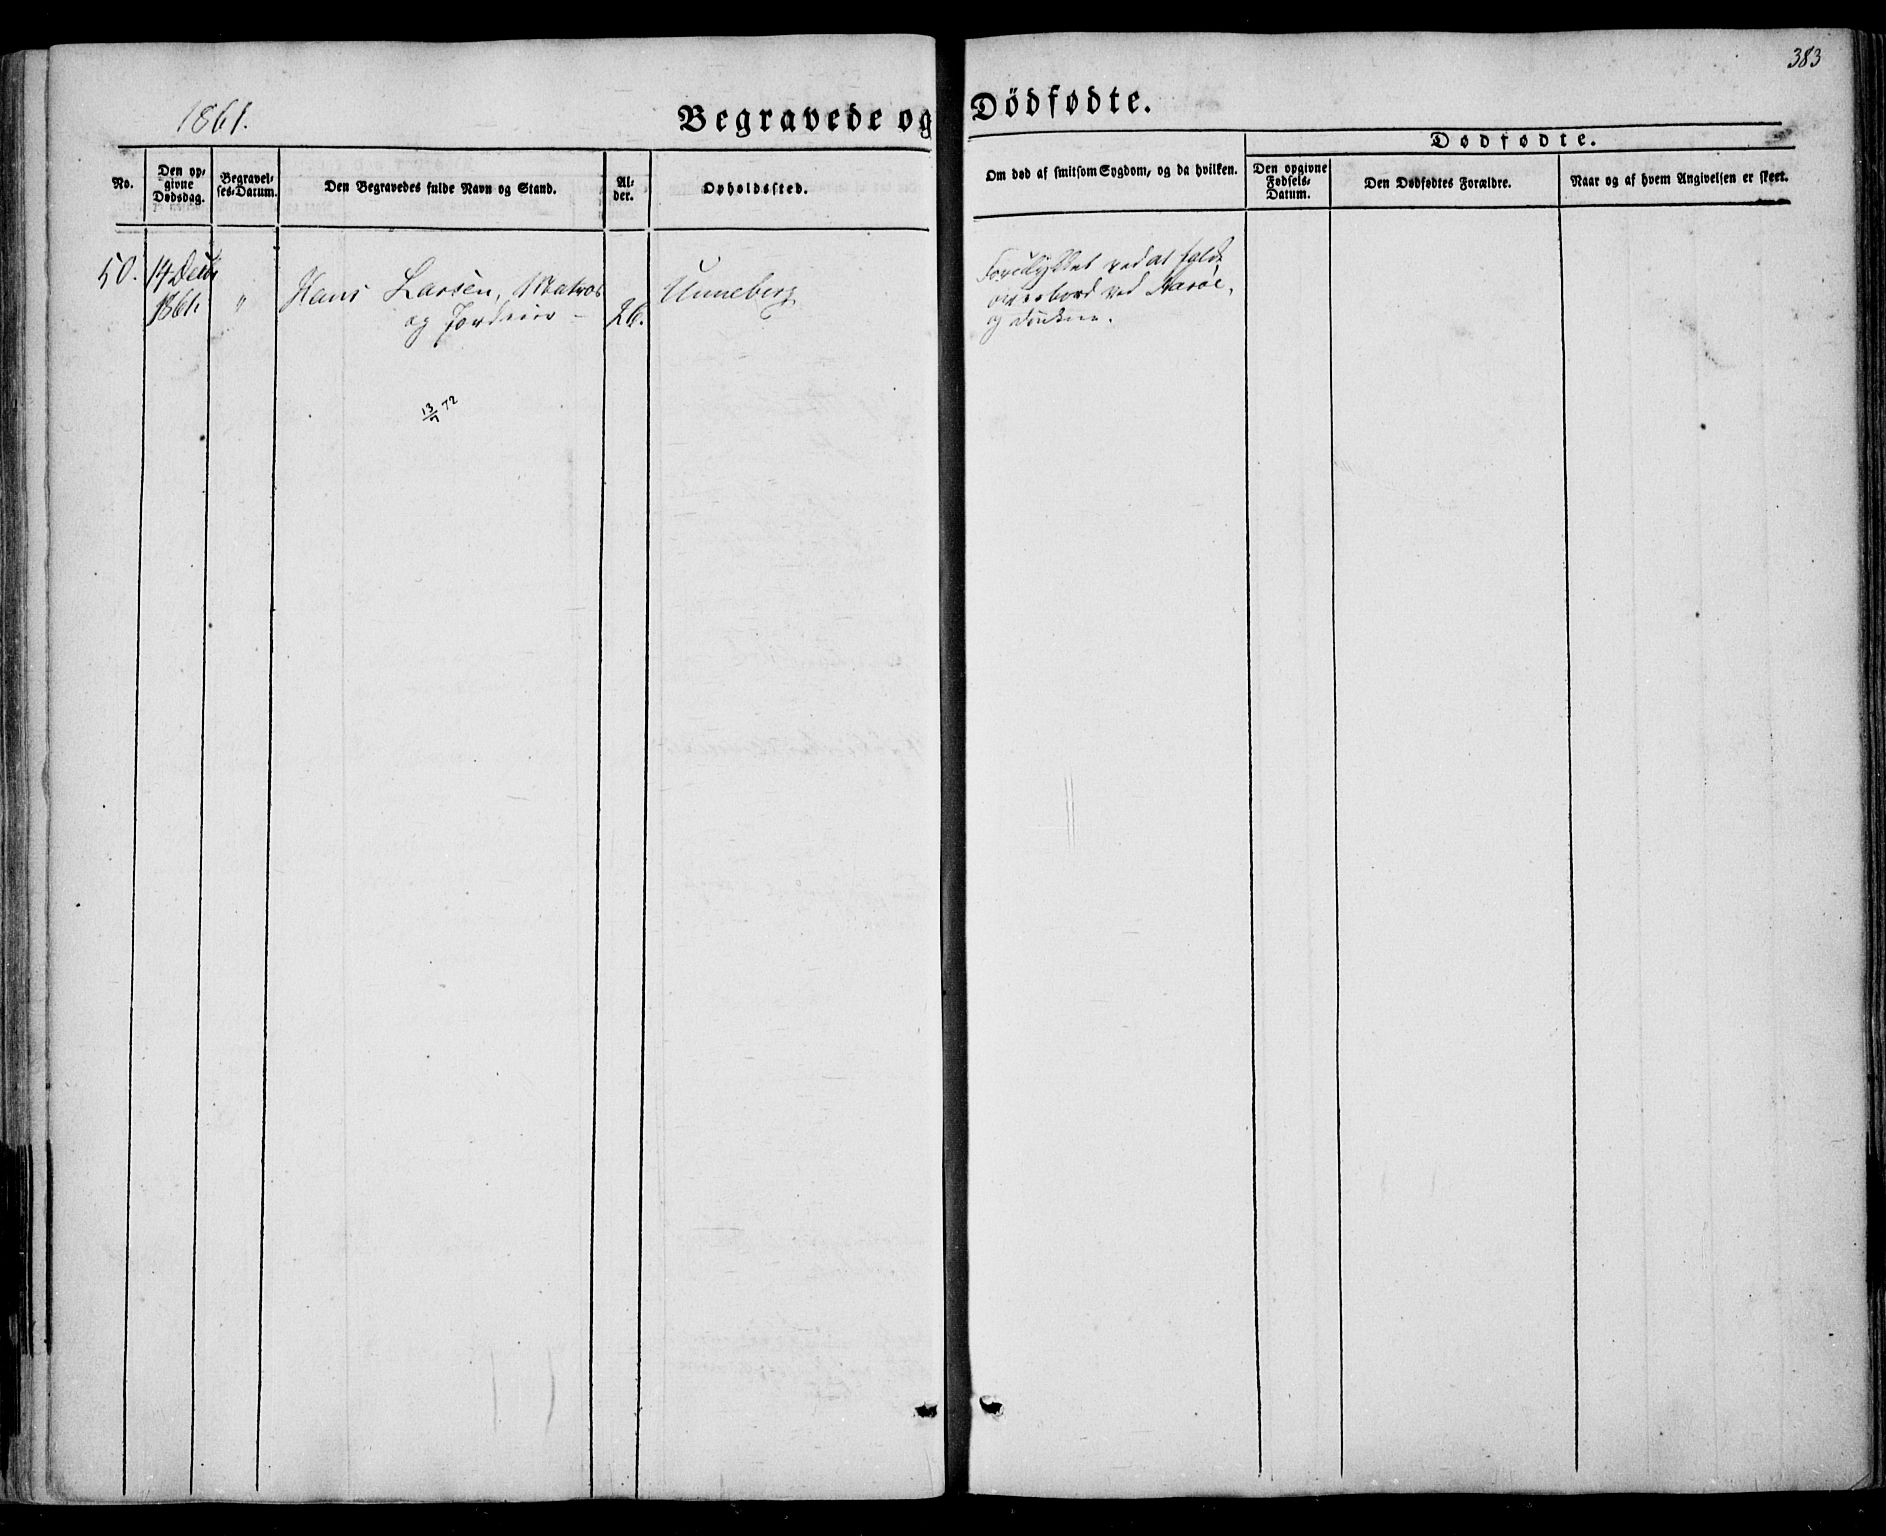 383
1861.
Begravede og Dödfødte.
Dødfødte.
No.
Den op-
givne
Dødsdag.
Begravel-
ses-Datum.
Den Begravedes fulde Navn og Stand.
Al-
der.
Opholdssted.
Om død af smitsom Sygdom, og da hvilken.
Den opgivne
Fødsels-
Datum.
Den Dødfødtes Forældre.
Naar og af hvem Angivelsen er skeet.
50.
14 Decbr
1861.
"
Hans Larsen, Matros
og
26.
Unneberg
Forulykket ved at falde
overbord ved
og
13/7 72